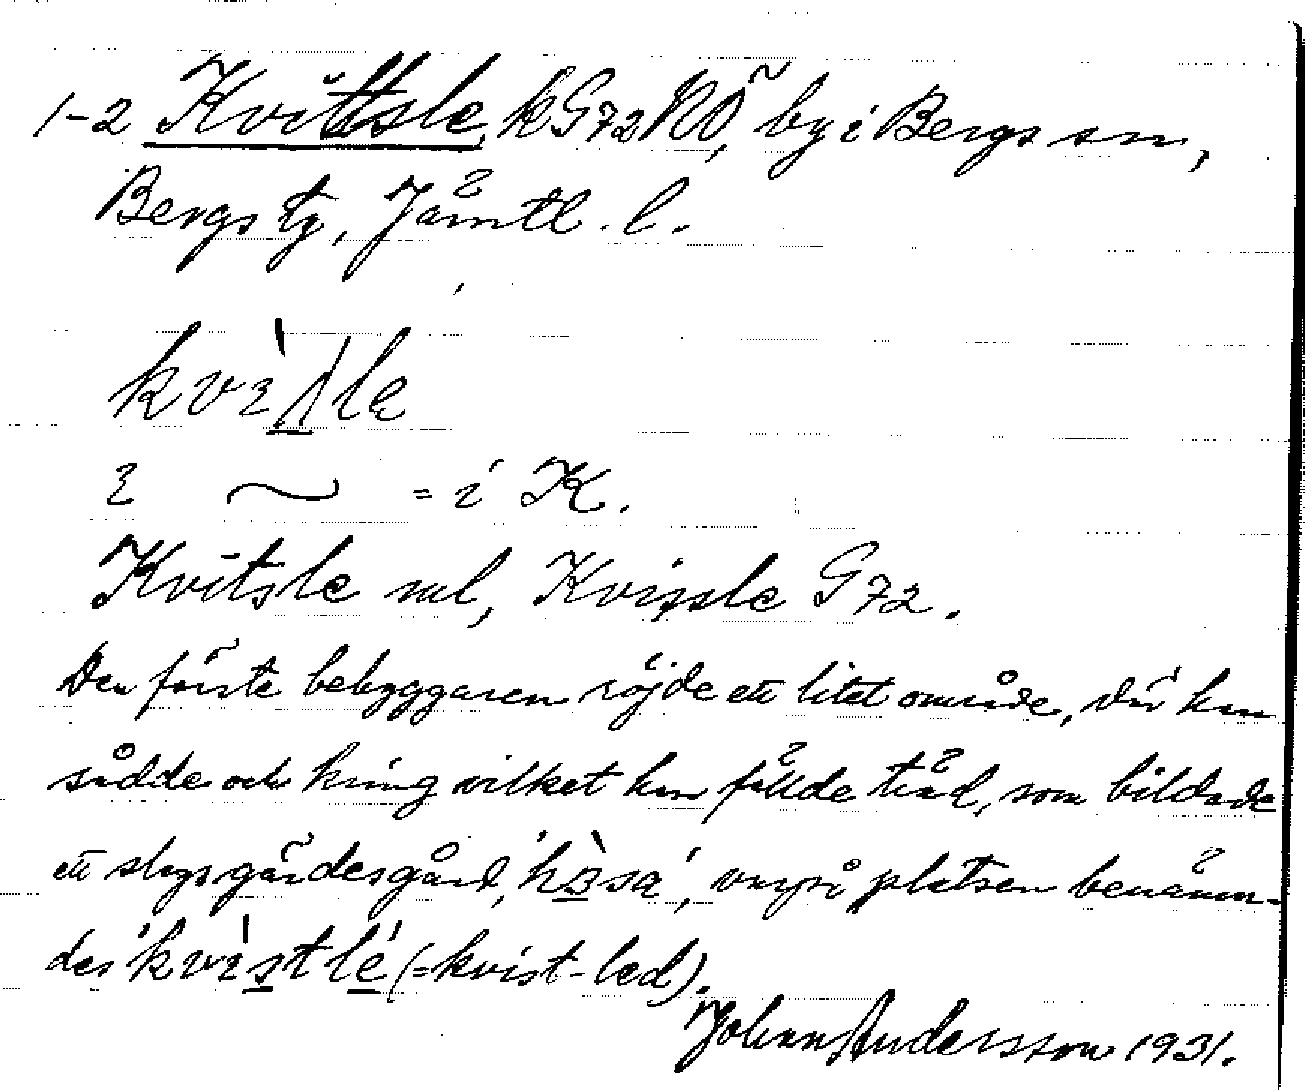 1-2 Kvittsle, kG72RÖ, by i Bergs sn,
Bergs tg, Jämtl. l.
i ~ = i K.
Kvitsle ml, Kvissle G72.
Den förste bebyggaren röjde ett litet område, där han
sådde och kring vilket han fällde träd, som bildade
ett slags gärdesgård, varpå platsen benämn-
des kvistlé (=kvist-led).
Johan Andersson 1931.